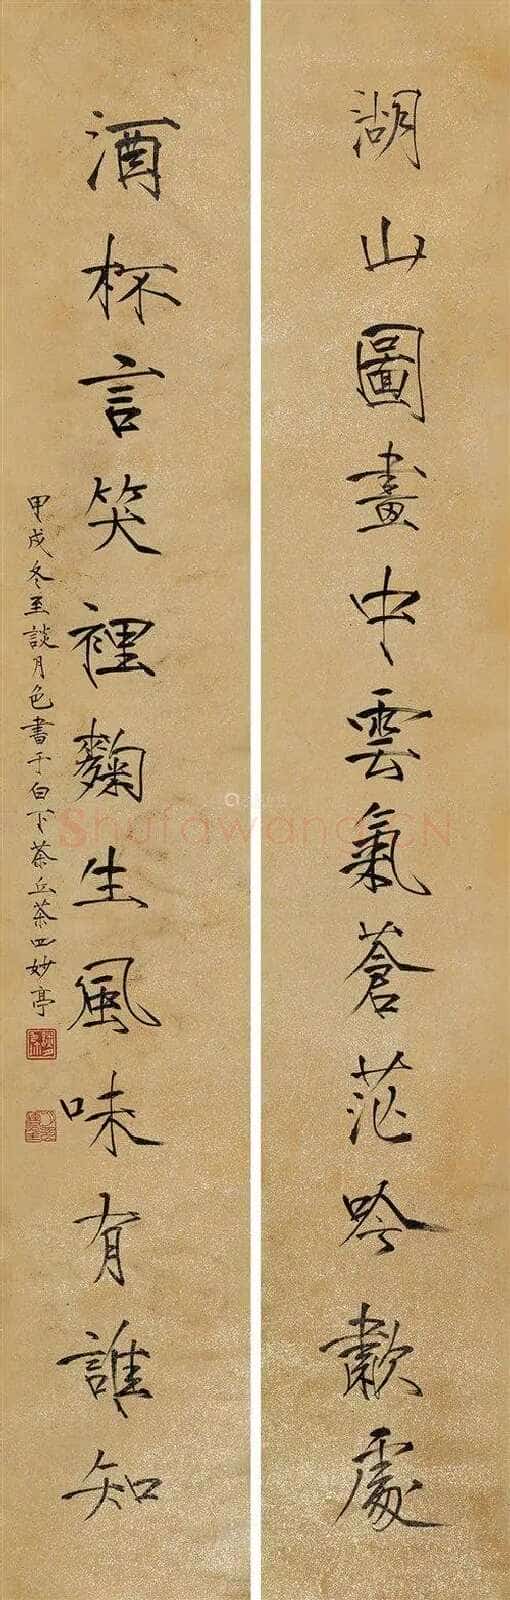 湖山圖畫中雲氣蒼茫吟歗處
酒杯言笑裡麴生風味有誰知
甲戌冬至談月色書于白下茶丘茶四妙亭
Shufawang.CN